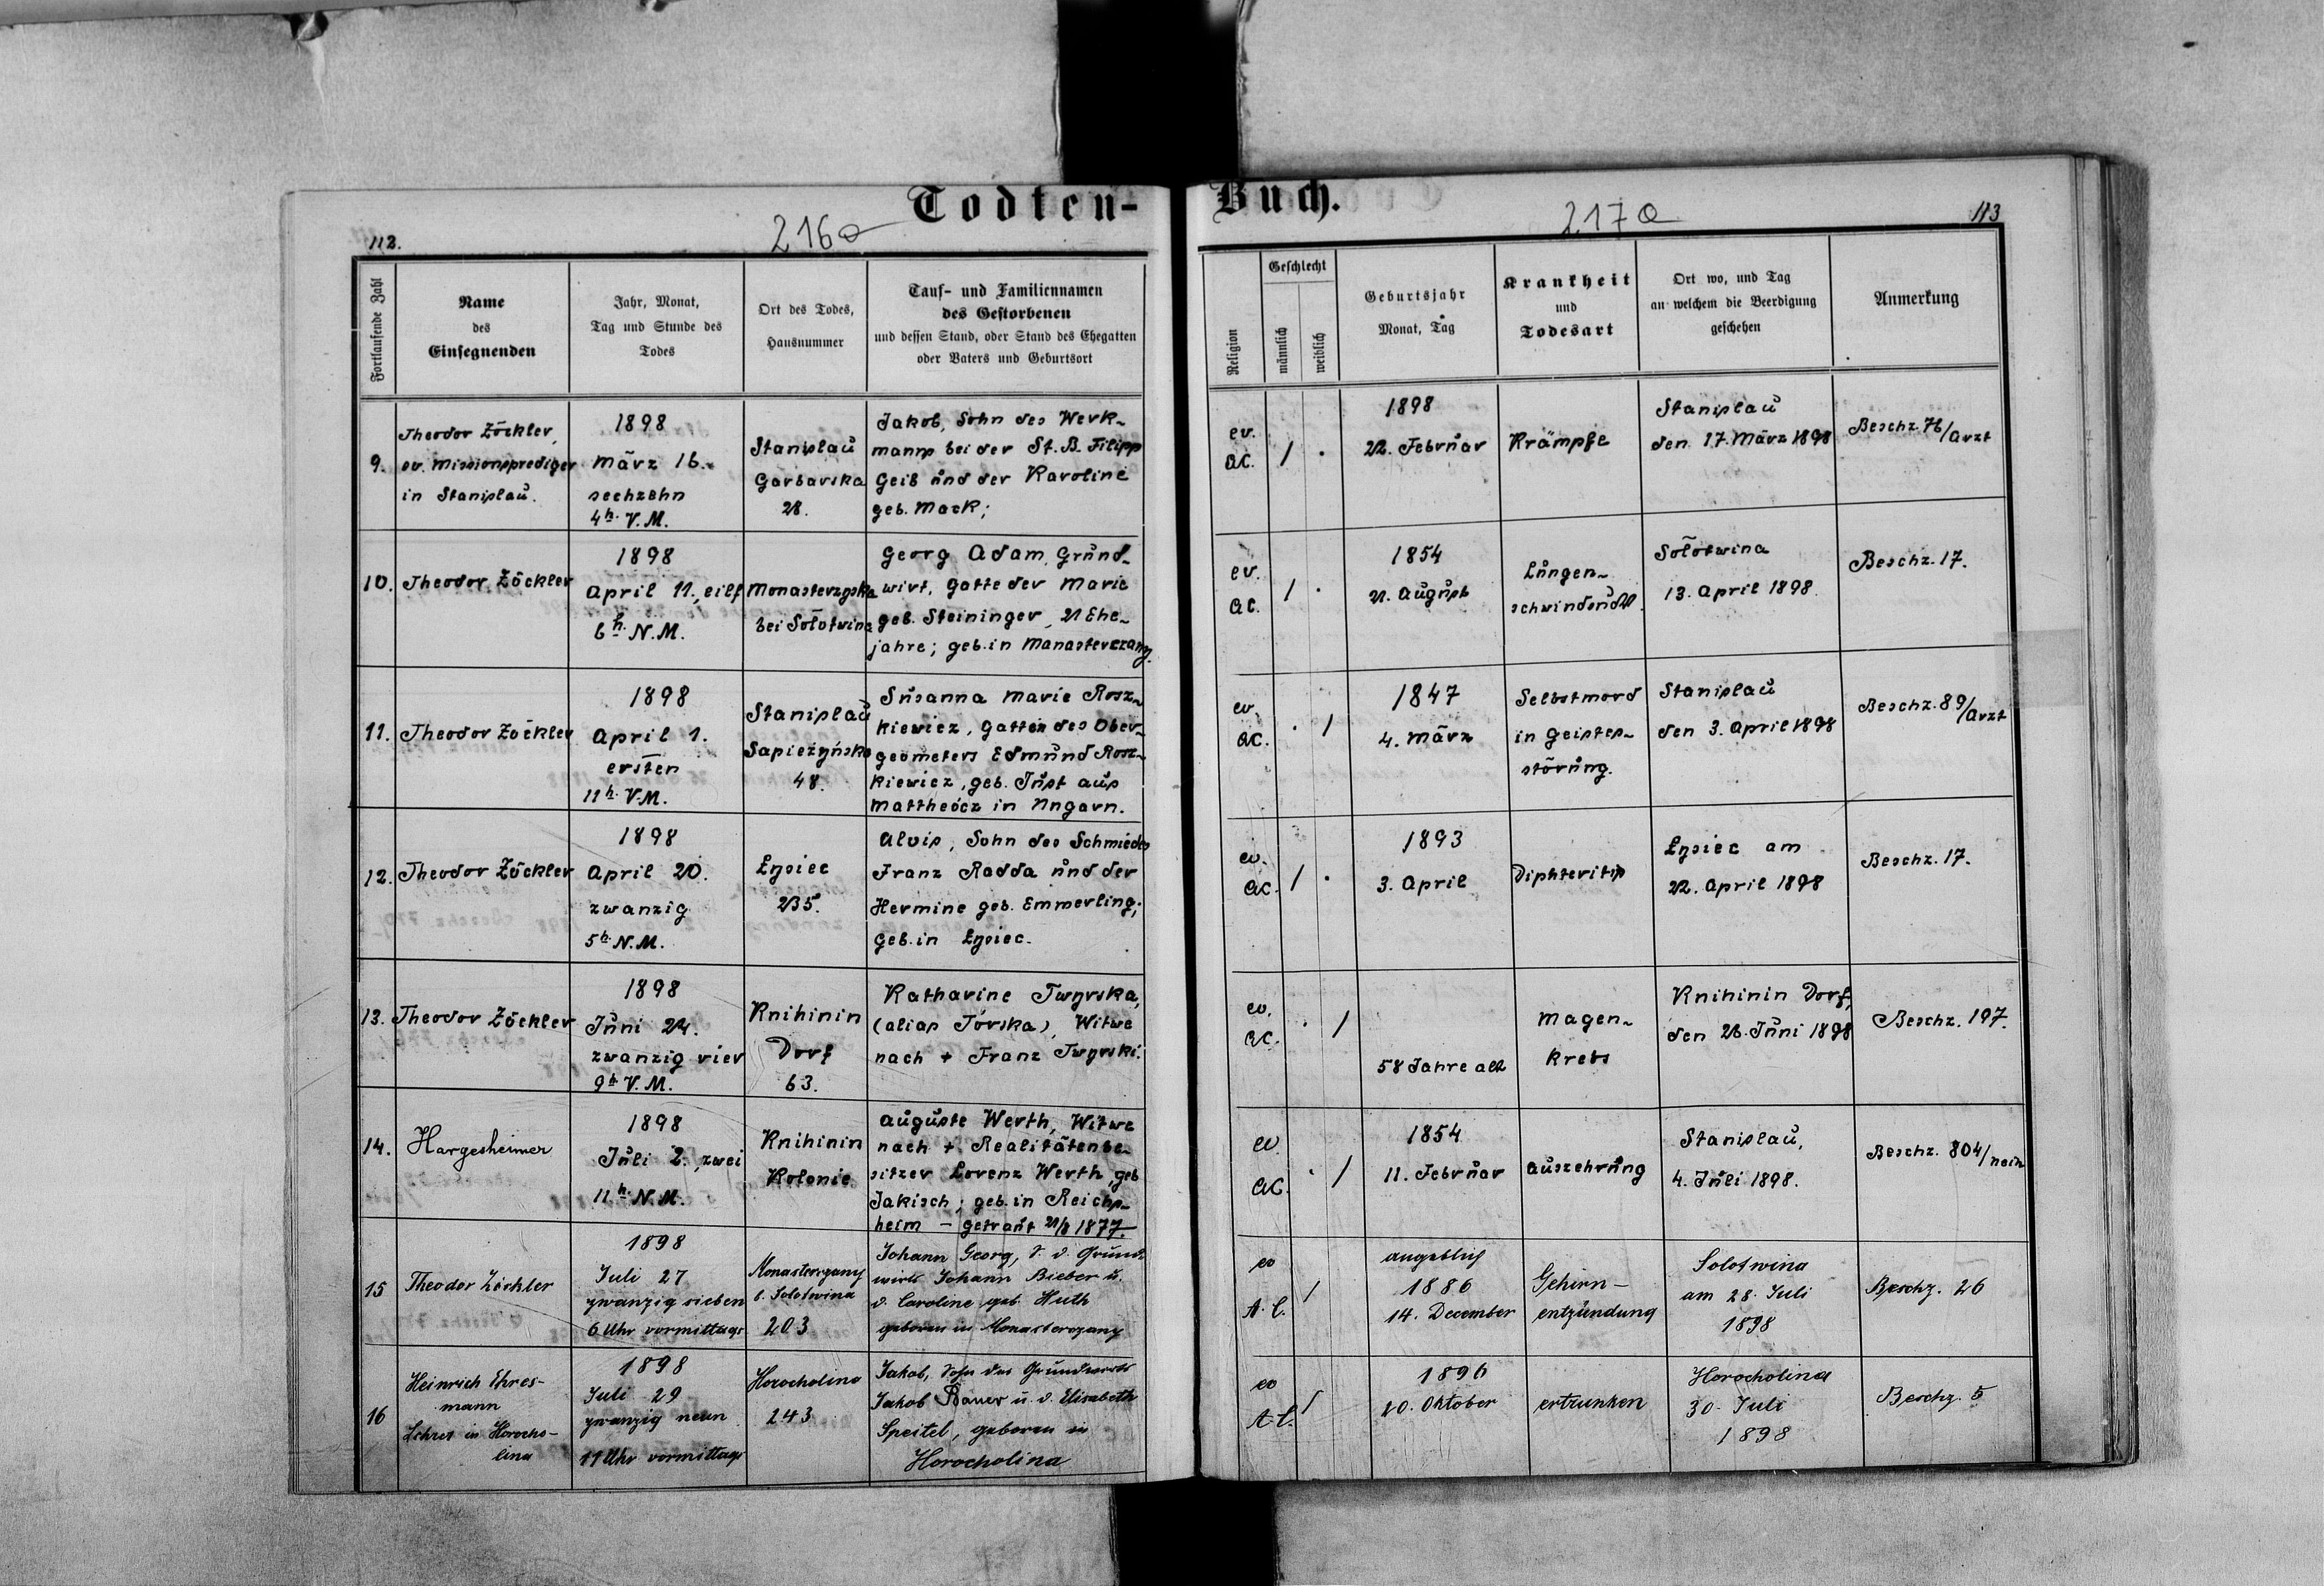 Todten-
216a
112.
Fortlaufende Zahl
Name
des
Einsegnenden
Jahr, Monat,
Tag und Stunde des
Todes
Ort des Todes,
Hausnummer
Tauf- und Familiennamen
des Gestorbenen
und dessen Stand, oder Stand des Ehegatten
oder Vaters und Geburtsort
9.
Theodor Zöckler,
ev. Missionsprediger
in Stanislau.
1898
März 16.
sechzehn
4h. V.M.
Stanislau
Garbarska
28.
Jakob, Sohn des Werk-
manns bei der St. B. Filipp
Geib und der Karoline
geb. Mack;
10.
Theodor Zöckler
1898
April 11., eilf
6h. N.M.
Monasterzyska
bei Solotwina
Georg Adam, Grund-
wirt, Gatte der Marie
geb. Steininger, 21 Ehe-
jahre; geb. in Manasterczany.
11.
Theodor Zöckler
1898
April 1.
ersten
11h. V.M.
Stanislau
Sapieżyńska
48.
Susanna Marie Rosz-
kiewicz, Gattin des Ober-
geometers Edmund Rosz-
kiewicz, geb. Just aus
Mattheócz in Ungarn.
12.
Theodor Zöckler
1898
April 20.
zwanzig
5h. N.M.
Łysiec
235.
Alois, Sohn des Schmiedes
Franz Radda und der
Hermine geb. Emmerling;
geb. in Łysiec.
13.
Theodor Zöckler
1898
Juni 24.
zwanzig vier
9h V.M.
Knihinin
Dorf
63.
Katharine Twyrska,
(alias Tórska), Witwe
nach + Franz Twyrski.
14.
Hargesheimer
1898
Juli 2., zwei
11h. N.M.
Knihinin
Kolonie
Auguste Werth, Witwe
nach + Realitätenbe-
sitzer Lorenz Werth, geb
Jakisch; geb. in Reichs-
heim - getraut 21/8 1877.
15
Theodor Zöckler
1898
Juli 27
zwanzig sieben
6 Uhr vormittags
Monasterzany
b. Solotwina
203
Johann Georg, S. d. Grund-
wirts Johann Bieber u.
d. Caroline geb. Huth
geboren in Monasterczany
16
Heinrich Ehres-
mann
Lehrer in Horocho-
lina
1898
Juli 29
zwanzig neun
11 Uhr vormittags
Horocholina
243
Jakob, Sohn des Grundwirts
Jakob Bauer u. d. Elisabeth
Speitel, geboren in
Horocholina
Buch.
217a
113
Religion
Geschlecht
männlich
weiblich
Geburtsjahr
Monat, Tag
Krankheit
und
Todesart
Ort wo, und Tag
an welchem die Beerdigung
geschehen
Anmerkung
ev.
AC.
1898
22. Februar
Krämpfe
Stanislau
den 17. März 1898
Beschz. 76/Arzt
ev.
AC.
1854
21. August
Lungen-
schwindsucht
Solotwina
13. April 1898
Beschz. 17.
ev.
AC.
1847
4. März
Selbstmord
in Geistes-
störung.
Stanislau
den 3. April 1898
Beschz. 89/Arzt
ev.
AC.
1893
3. April
Diphteritis
Łysiec am
22. April 1898
Beschz. 17.
ev.
AC.
58 Jahre alt
Magen-
krebs
Knihinin Dorf,
den 26. Juni 1898
Beschz. 197.
ev.
AC.
1854
11. Februar
Auszehrung
Stanislau,
4. Juli 1898.
Beschz. 804/
ev
A.C.
angeblich
1886
14. December
Gehirn-
entzündung
Solotwina
am 28. Juli
1898
Beschz. 26
ev
A.C.
1896
20. Oktober
ertrunken
Horocholina
30. Juli
1898
Beschz. 5